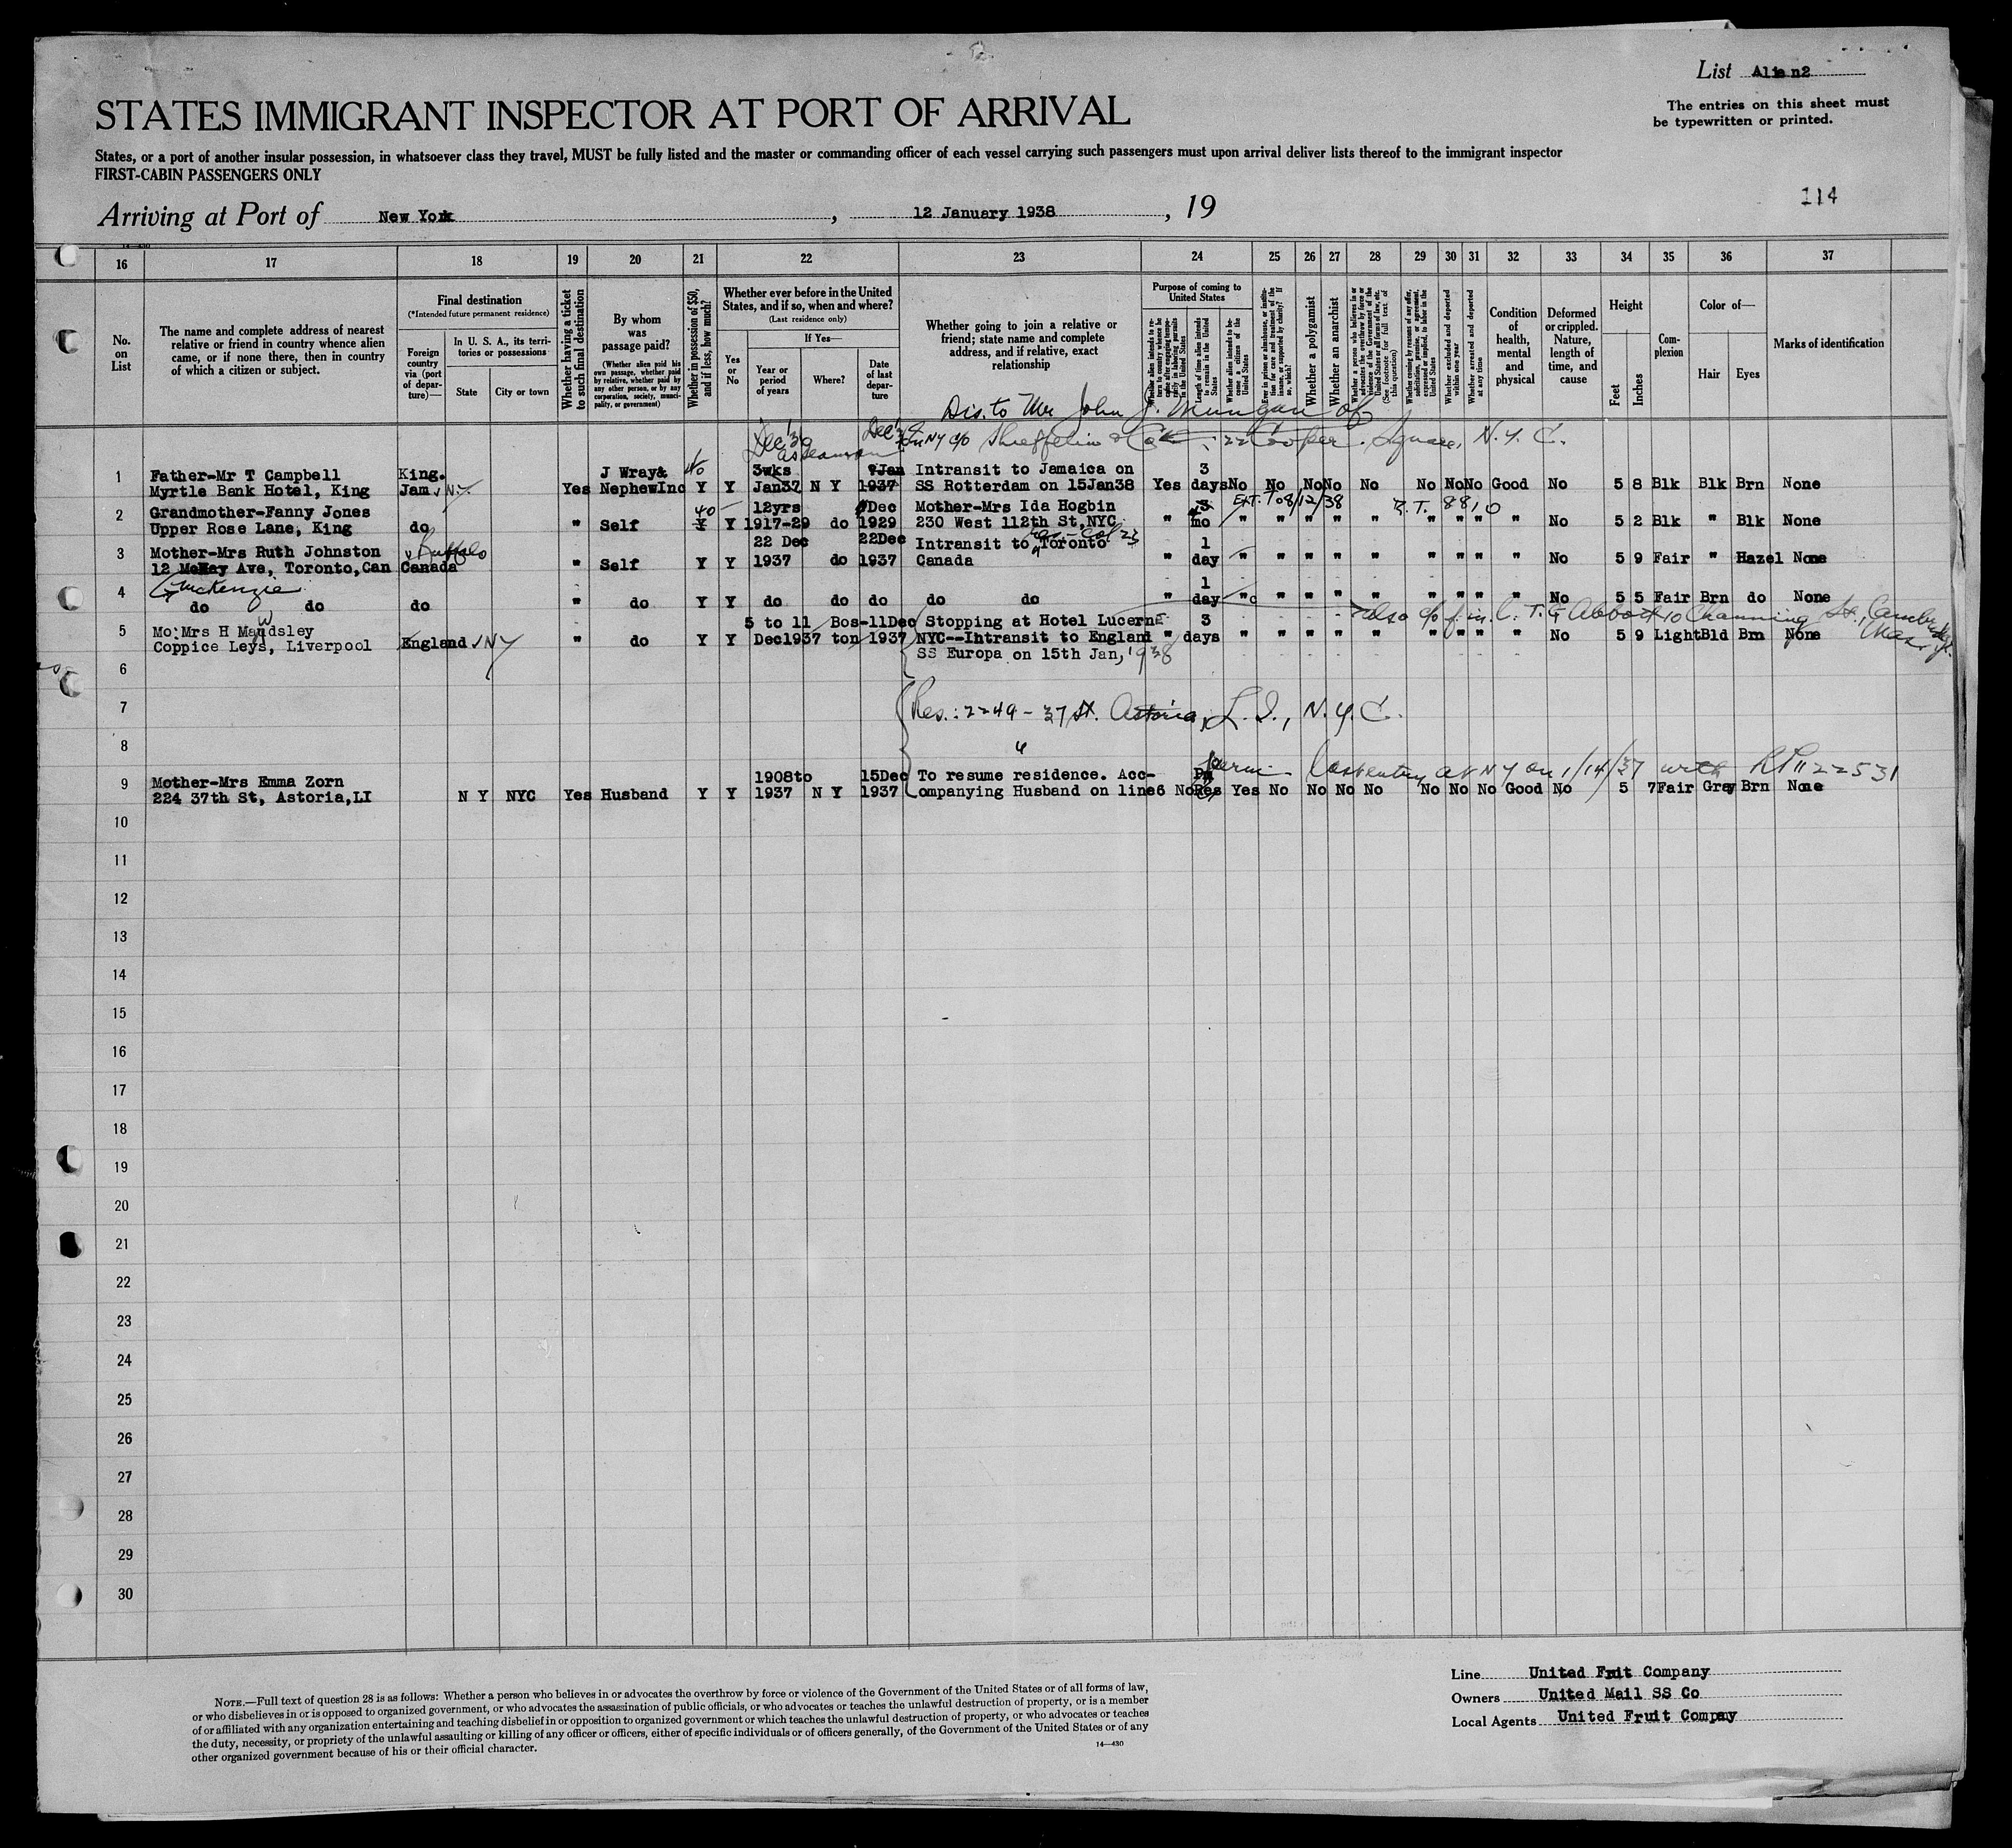 List Alien2
STATES IMMIGRANT INSPECTOR AT PORT OF ARRIVAL
The entries on this sheet must
be typewritten or printed.
States, or a port of another insular possession, in whatsoever class they travel, MUST be fully listed and the master or commanding officer of each vessel carrying such passengers must upon arrival deliver lists thereof to the immigrant inspector
FIRST-CABIN PASSENGERS ONLY
114
Arriving at Port of New York, 12 January 1938, 19
16 17 18 19 20 21 22 23 24 25 26 27 28 29 30 31 32 33 34 35 36 37
No. on List
The name and complete address of nearest relative or friend in country whence alien came, or if none there, then in country of which a citizen or subject.
Final destination
(*Intended future permanent residence)
Foreign country via (port of departure)—
In U. S. A., its territories or possessions
State
City or town
Whether having a ticket to such final destination
By whom was passage paid?
(Whether alien paid his own passage, whether paid by relative, whether paid by any other person, or by any corporation, society, municipality, or government)
Whether in possession of $50, and if less, how much?
Whether ever before in the United States, and if so, when and where?
(Last residence only)
Yes or No
If Yes—
Year or period of years
Where?
Date of last departure
Whether going to join a relative or friend; state name and complete address, and if relative, exact relationship
Purpose of coming to United States
Length of time alien intends to remain in the United States
Whether alien intends to become a citizen of the United States
Whether a polygamist
Whether an anarchist
(See footnote for full text of this question)
Whether excluded and deported within one year
Whether arrested and deported at any time
Condition of health, mental and physical
Deformed or crippled. Nature, length of time, and cause
Height
Feet
Inches
Complexion
Color of—
Hair
Eyes
Marks of identification
Dis. to Mr John J. Mungan of
c/o & Co 22 Cooper Square, N.Y.C.
1 Father-Mr T Campbell King. J Wray& 3wks 7Jan Intransit to Jamaica on 3
Myrtle Bank Hotel, King Jam NY Yes NephewInc Y Y Jan37 N Y 1937 SS Rotterdam on 15Jan38 Yes days No No No No No No No No Good No 5 8 Blk Blk Brn None
2 Grandmother-Fanny Jones 40 12yrs Dec Mother-Mrs Ida Hogbin EXT. TO 8/12/38 R.T. 8810
Upper Rose Lane, King do " Self Y Y 1917-29 do 1929 230 West 112th St,NYC " mo " " " " " " " " " No 5 2 Blk " Blk None
3 Mother-Mrs Ruth Johnston v Buffalo 22 Dec 22Dec Intransit to Toronto 1
12 McKay Ave, Toronto,Can Canada " Self Y Y 1937 do 1937 Canada " day " " " " " " " " " No 5 9 Fair " Hazel None
McKenzie
4 do do do " do Y Y do do do do do " 1 day " No 5 5 Fair Brn do None
also c/o C. T. G Abbott 10 Channing St., Cambridge, Mass.
5 Mo:Mrs H Mawdsley 5 to 11 Bos- 11Dec Stopping at Hotel Lucerne 3
Coppice Leys, Liverpool England NY " do Y Y Dec1937 ton 1937 NYC--Intransit to England " days " " " " " " " " " No 5 9 Light Bld Brn None
SS Europa on 15th Jan, 1938
6
7 Res.: 2249 - 37 St. Astoria, L. I., N.Y.C.
8 "
9 Mother-Mrs Emma Zorn 1908to 15Dec To resume residence. Acc- Perm. at NY on 1/14/37 with RP 1122531
224 37th St, Astoria,LI N Y NYC Yes Husband Y Y 1937 N Y 1937 ompanying Husband on line6 No Res Yes No No No No No No No Good No 5 7 Fair Grey Brn None
10
11
12
13
14
15
16
17
18
19
20
21
22
23
24
25
26
27
28
29
30
Line United Fruit Company
Owners United Mail SS Co
Local Agents United Fruit Compay
NOTE.—Full text of question 28 is as follows: Whether a person who believes in or advocates the overthrow by force or violence of the Government of the United States or of all forms of law,
or who disbelieves in or is opposed to organized government, or who advocates the assassination of public officials, or who advocates or teaches the unlawful destruction of property, or is a member
of or affiliated with any organization entertaining and teaching disbelief in or opposition to organized government or which teaches the unlawful destruction of property, or who advocates or teaches
the duty, necessity, or propriety of the unlawful assaulting or killing of any officer or officers, either of specific individuals or of officers generally, of the Government of the United States or of any
other organized government because of his or their official character.
14—430